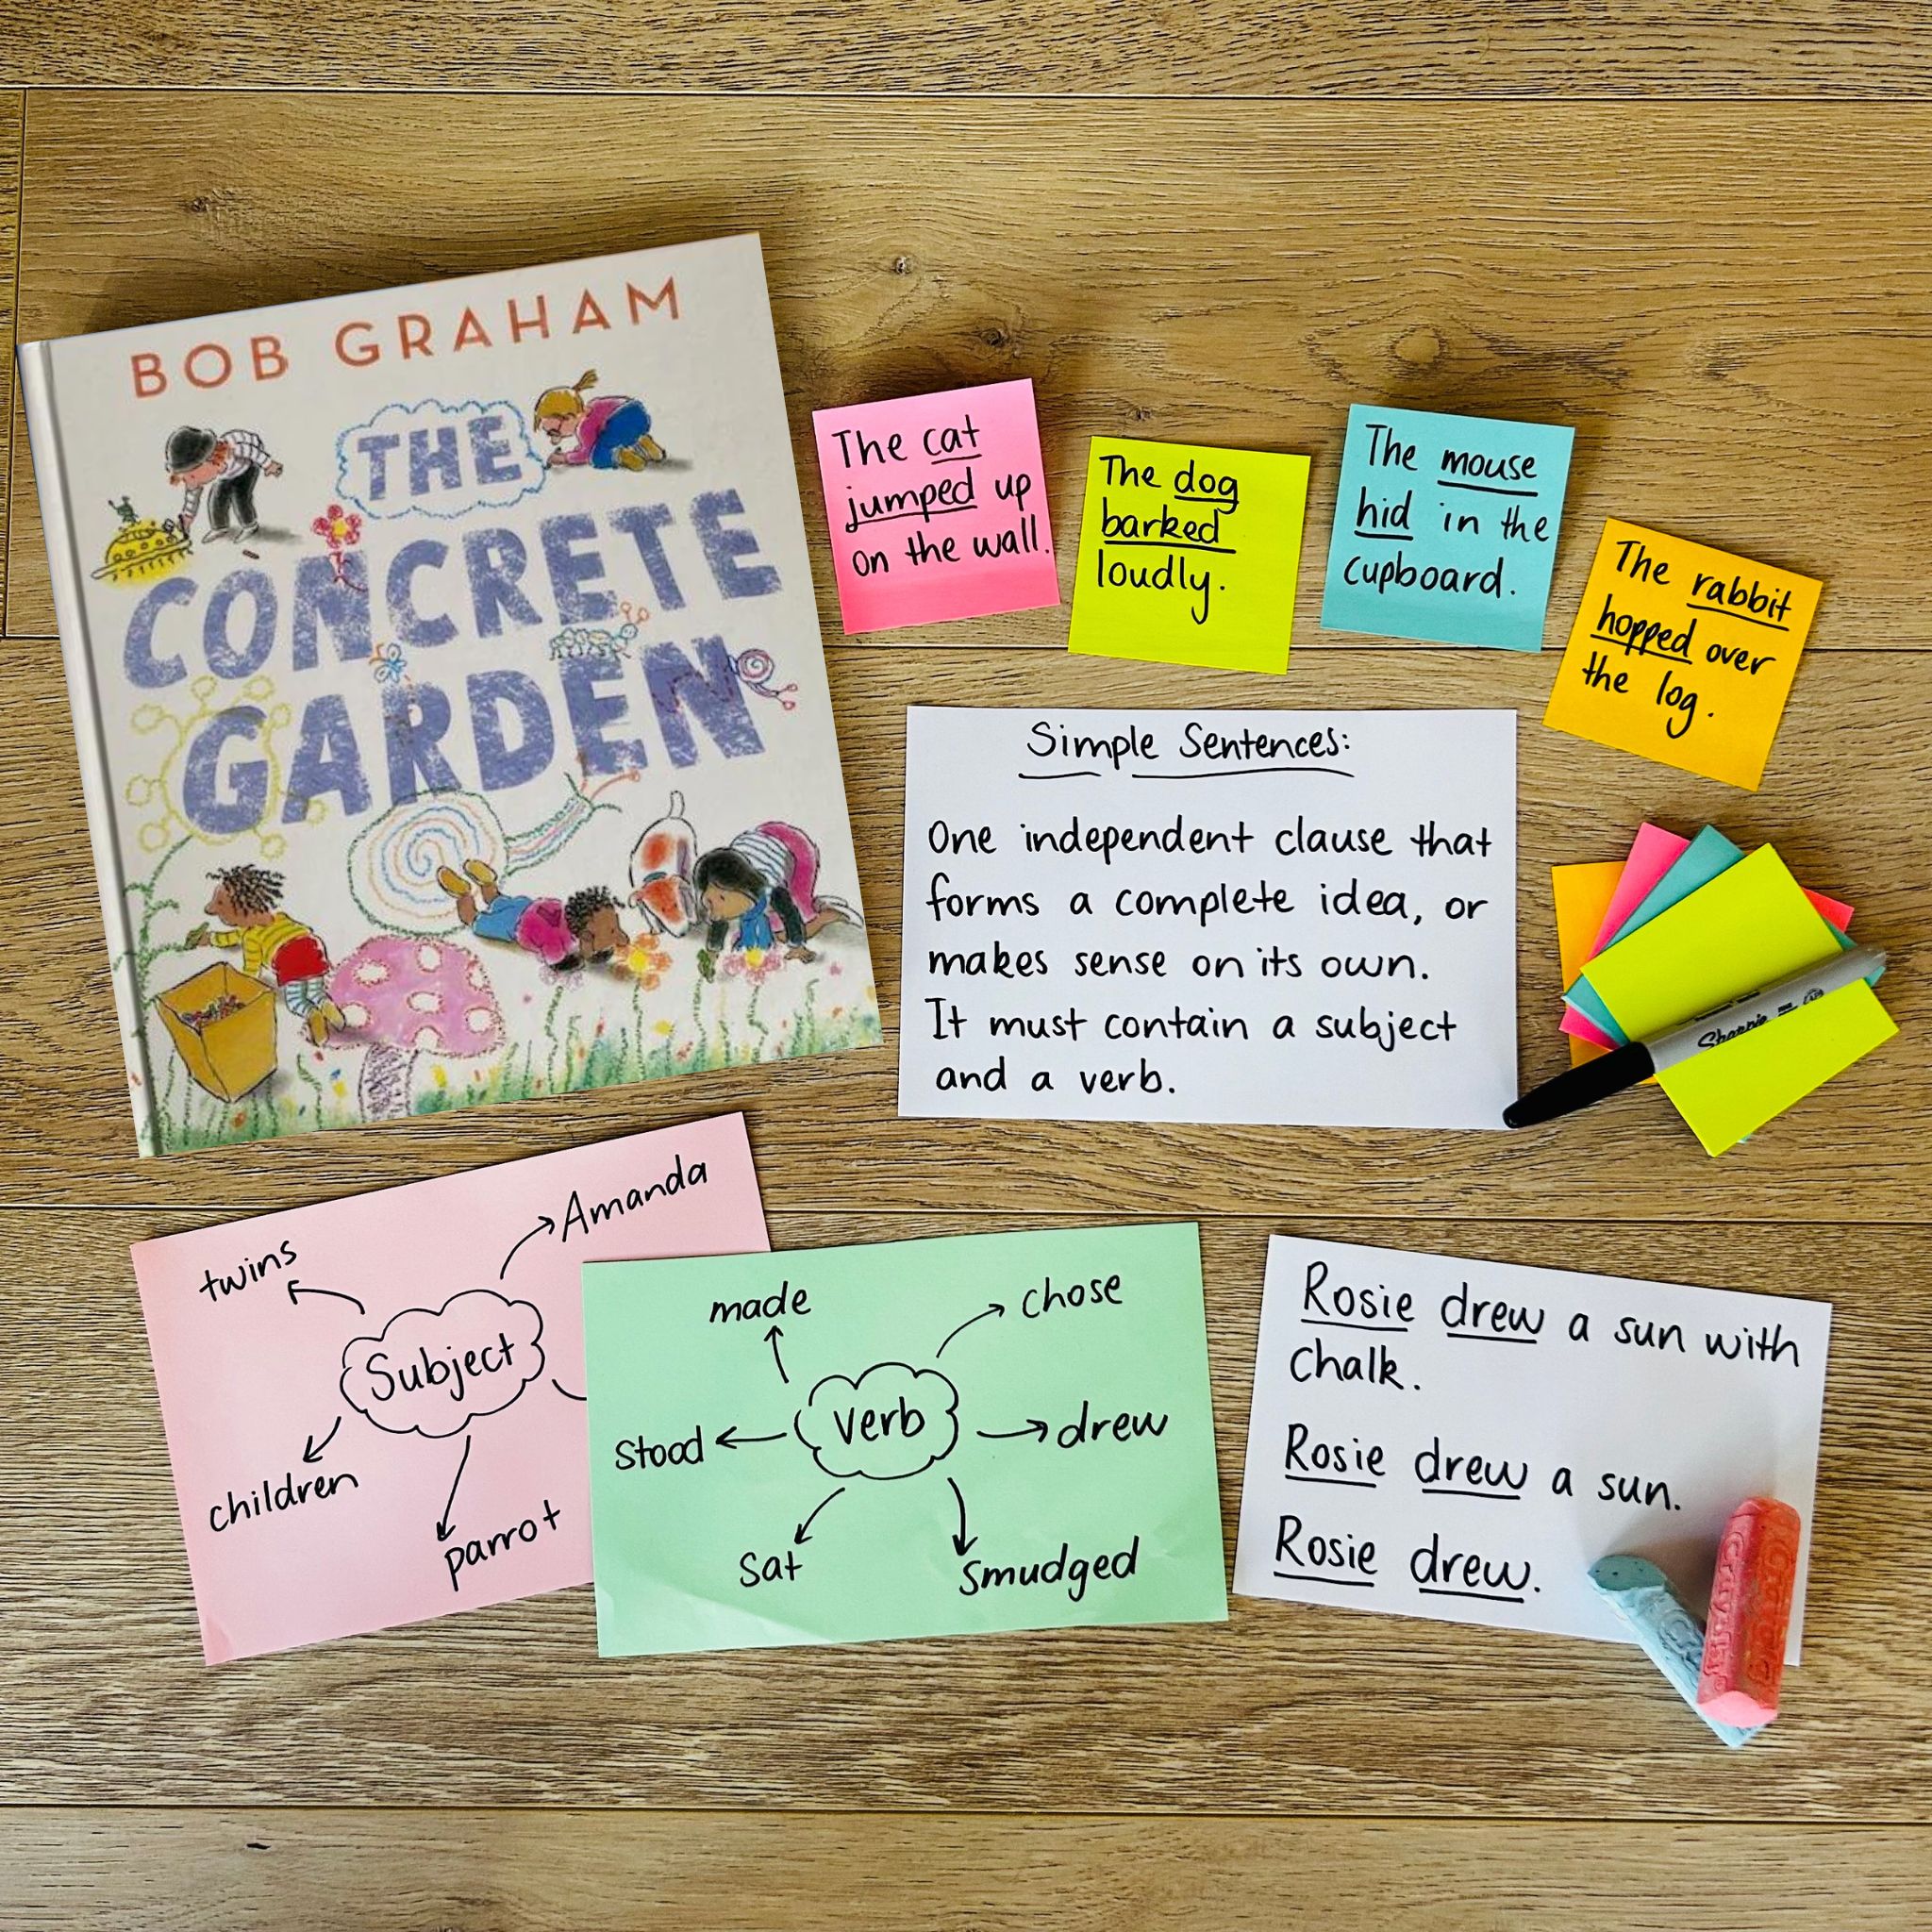 BOB GRAHAM
THE
CONCRETE
GARDEN
The cat
jumped up
on the wall.
The dog
barked
loudly.
The mouse
hid in the
cupboard.
The rabbit
hopped over
the log.
Simple Sentences:
One independent clause that
forms a complete idea, or
makes sense on its own.
It must contain a subject
and a verb.
Sharpie
Amanda
twins
Subject
children
parrot
made
chose
verb
stood
drew
sat
smudged
Rosie drew a sun with
chalk.
Rosie drew a sun.
Rosie drew.